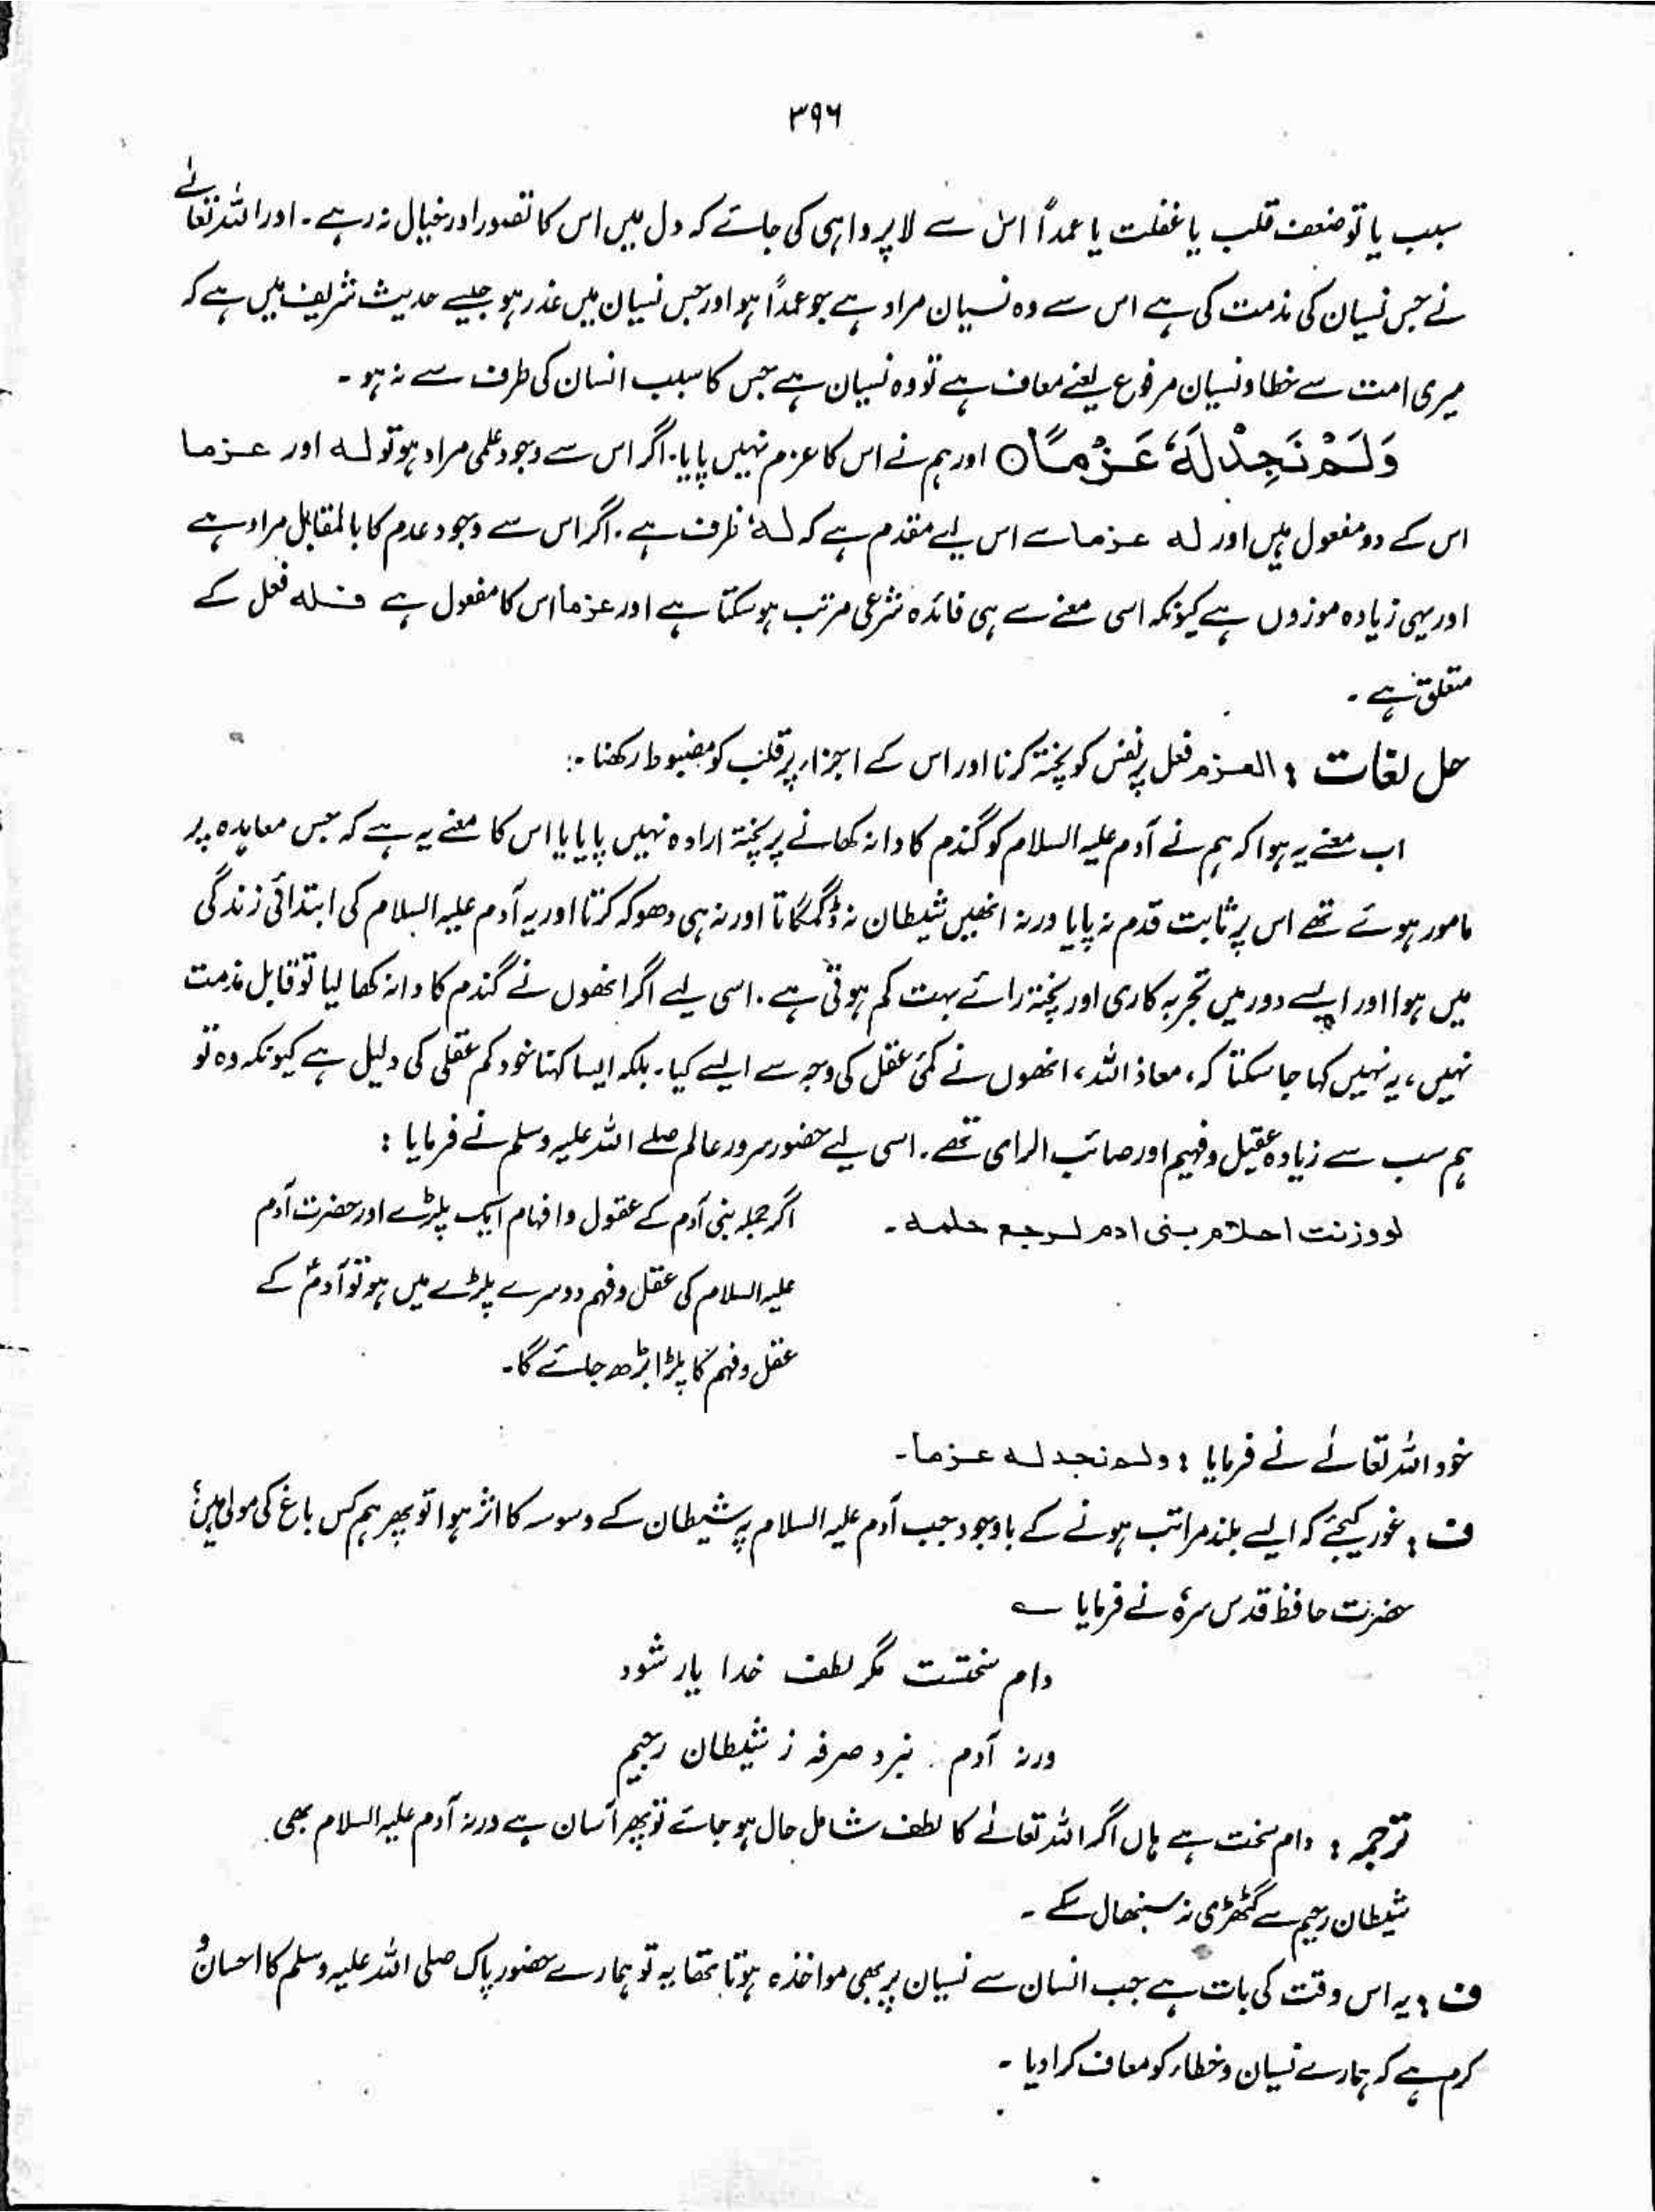 ۳۹۶
سبب یا تو ضعف قلب یا غفلت یا عمداً اس سے لاپرواہی کی جائے کہ دل میں اس کا تصور اور خیال نہ رہے۔ اور اللہ تعالےٰ
نے جس نسیان کی مذمت کی ہے اس سے وہ نسیان مراد ہے جو عمداً ہو اور جس نسیان میں عذر ہو جیسے حدیث شریف میں ہے کہ
میری امت سے خطا و نسیان مرفوع یعنے معاف ہے تو وہ نسیان ہے جس کا سبب انسان کی طرف سے نہ ہو۔
وَلَمْ نَجِدْ لَهٗ عَزْمًا ○ اور ہم نے اس کا عزم نہیں پایا۔ اگر اس سے وجود علمی مراد ہو تو لہ اور عزما
اس کے دو مفعول ہیں اور لہ عزما سے اس لیے مقدم ہے کہ لہٗ ظرف ہے۔ اگر اس سے وجود عدم کا بالمقابل مراد ہے
اور یہی زیادہ موزوں ہے کیونکہ اسی معنے سے ہی فائدہ شرعی مرتب ہو سکتا ہے اور عزما اس کا مفعول ہے فلہ فعل کے
متعلق ہے۔
حل لغات : العزم فعل پر نفس کو پختہ کرنا اور اس کے اجزاء پر قلب کو مضبوط رکھنا :۔
اب معنے یہ ہوا کہ ہم نے آدم علیہ السلام کو گندم کا دانہ کھانے پر پختہ ارادہ نہیں پایا یا اس کا معنے یہ ہے کہ جس معاہدہ پر
مامور ہوئے تھے اس پر ثابت قدم نہ پایا ورنہ انھیں شیطان نہ ڈگمگاتا اور نہ ہی دھوکہ کرتا اور یہ آدم علیہ السلام کی ابتدائی زندگی
میں ہوا اور ایسے دور میں تجربہ کاری اور پختہ رائے بہت کم ہوتی ہے۔ اسی لیے اگر انھوں نے گندم کا دانہ کھا لیا تو قابل مذمت
نہیں، یہ نہیں کہا جا سکتا کہ، معاذ اللہ، انھوں نے کمئ عقل کی وجہ سے ایسے کیا۔ بلکہ ایسا کہنا خود کم عقلی کی دلیل ہے کیونکہ وہ تو
ہم سب سے زیادہ عقیل و فہیم اور صائب الرای تھے۔ اسی لیے حضور سرور عالم صلے اللہ علیہ وسلم نے فرمایا :
لو وزنت احلام بنی ادم لرجع حلمہ۔
اگر جملہ بنی آدم کے عقول و افہام ایک پلڑے اور حضرت آدم
علیہ السلام کی عقل و فہم دوسرے پلڑے میں ہو تو آدمؑ کے
عقل و فہم کا پلڑا بڑھ جائے گا۔
خود اللہ تعالےٰ نے فرمایا : ولم نجد لہ عزما۔
ف : غور کیجئے کہ ایسے بلند مراتب ہونے کے باوجود جب آدم علیہ السلام پر شیطان کے وسوسہ کا اثر ہوا تو پھر ہم کس باغ کی مولی ہیں؟
حضرت حافظ قدس سرہٗ نے فرمایا ؎
دام سختست مگر لطف خدا یار شود
ورنہ آدم نبرد صرفہ ز شیطان رجیم
ترجمہ : دام سخت ہے ہاں اگر اللہ تعالےٰ کا لطف شامل حال ہو جائے تو پھر آسان ہے ورنہ آدم علیہ السلام بھی
شیطان رجیم سے گٹھڑی نہ سنبھال سکے۔
ف : یہ اس وقت کی بات ہے جب انسان سے نسیان پر بھی مواخذہ ہوتا تھا یہ تو ہمارے حضور پاک صلی اللہ علیہ وسلم کا احسان و
کرم ہے کہ ہمارے نسیان و خطاء کو معاف کرا دیا۔